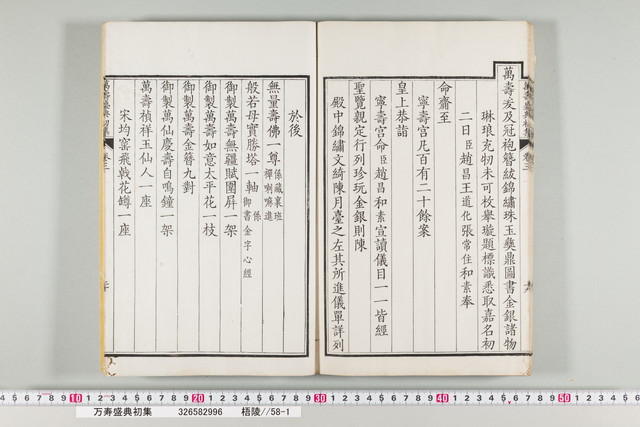 萬壽爰及冠袍簪紱錦繡珠玉彝鼎圖書金銀諸物
琳琅充牣未可枚舉璇題標識悉取嘉名初
二日臣趙昌王道化張常住和素奉
命齋至
寧壽宮凡百有二十餘案
皇上恭詣
寧壽宮命臣趙昌和素宣讀儀目一一皆經
聖覽親定行列珍玩金銀則陳
殿中錦繡文綺陳月臺之左其所進儀單詳列
於後
無量壽佛一尊係藏裏班禪喇嘛進
般若母寶勝塔一軸係御書金字心經
御製萬壽無疆賦圍屏一架
御製萬壽如意太平花一枝
御製萬壽金簪九對
御製萬仙慶壽自鳴鐘一架
萬壽楨祥玉仙人一座
宋均窰飛戟花罇一座
卷三
10 20 30 40 50
万寿盛典初集 326582996 梧陵//58-1